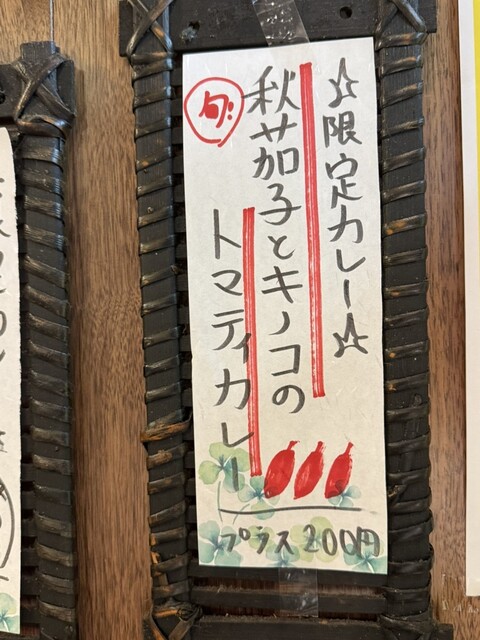 ☆限定カレー☆
秋茄子とキノコの
トマティカレー
旬
プラス200円